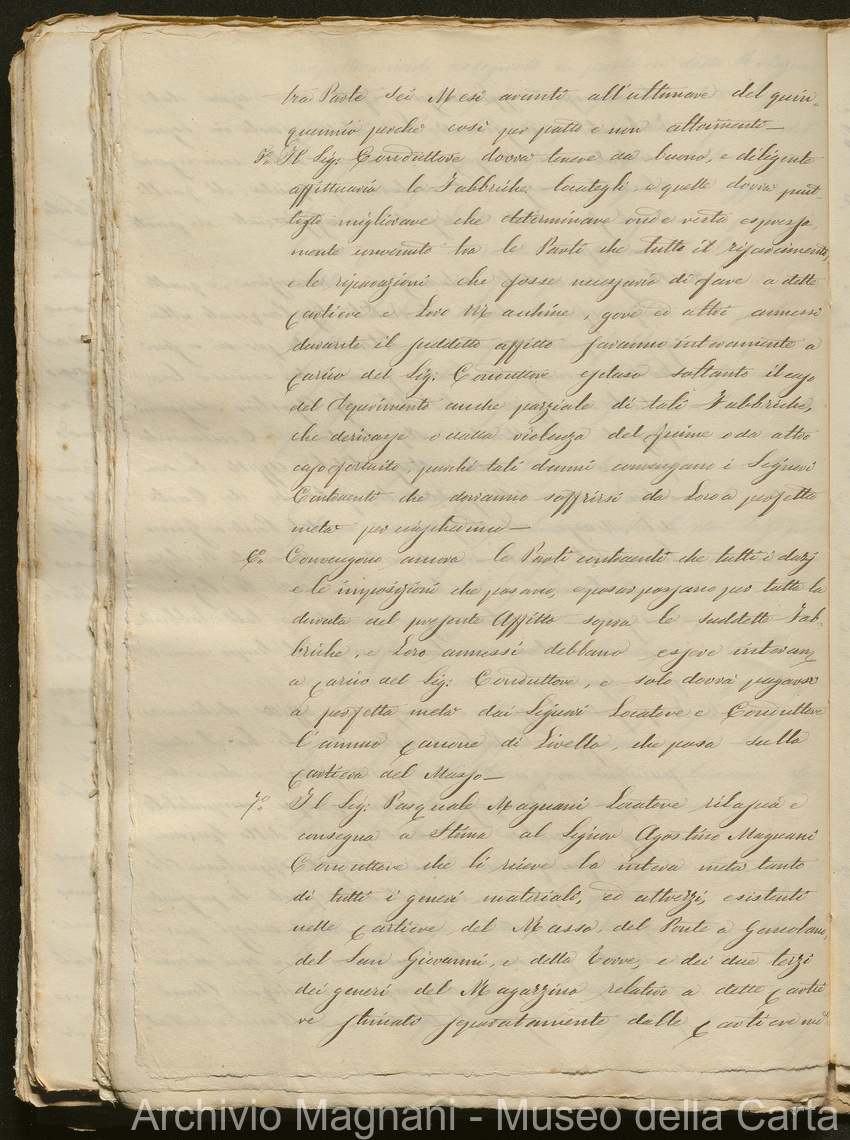 tra Parte sei Mesi avanti all'ultimare del quin-
quennio perche così per patto e non altrimenti —
5.o Il Sig: Conduttore dovrà tenere da buono, e diligente
affittuario le Fabbriche locategli, e quelle dovrà piut-
tosto migliorare che deteriorare onde resta espressa-
mente convenuto tra le Parti che tutto il rifacimento,
e le riparazioni che fosse necessario di fare a dette
Cartiere e Loro Machine, gore ed altri annessi
durante il suddetto affitto saranno interamente a
carico del Sig: Conduttore escluso soltanto il caso
del deperimento anche parziale di tali Fabbriche,
che derivasse o dalla violenza del fiume o da altro
caso fortuito, perché tali danni convengano i Signori
Contraenti che dovranno soffrirsi da Loro a perfetta
metà per ciascheduno —
6.o Convengono ancora le Parti contraenti che tutti i dazj
e le imposizioni che posano, e posar possano per tutta la
durata del presente Affitto sopra le suddette Fab-
briche, e Loro annessi debbano essere interam.e
a carico del Sig: Conduttore, e solo dovrà pagarsi
a perfetta metà dai Signori Locatore e Conduttore
l'annuo Canone di Livello, che posa sulla
Cartiera del Masso —
7.o Il Sig: Pasquale Magnani Locatore rilascia e
consegna a Stima al Signor Agostino Magnani
Conduttore che li riceve la intera metà tanto
di tutti i generi materiali, ed attrezzi, esistenti
nelle Cartiere del Masso, del Ponte a
del San Giovanni, e della Torre, e dei due terzi
dei generi del Magazzino relativo a dette Cartie
re stimato separatamente dalle Cartiere
Archivio Magnani - Museo della Carta